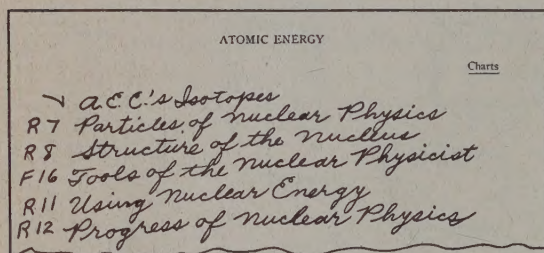 ATOMIC ENERGY
Charts
✓ A.E.C.'s Isotopes
R7 Particles of Nuclear Physics
R8 Structure of the Nucleus
F16 Tools of the Nuclear Physicist
R11 Using Nuclear Energy
R12 Progress of Nuclear Physics